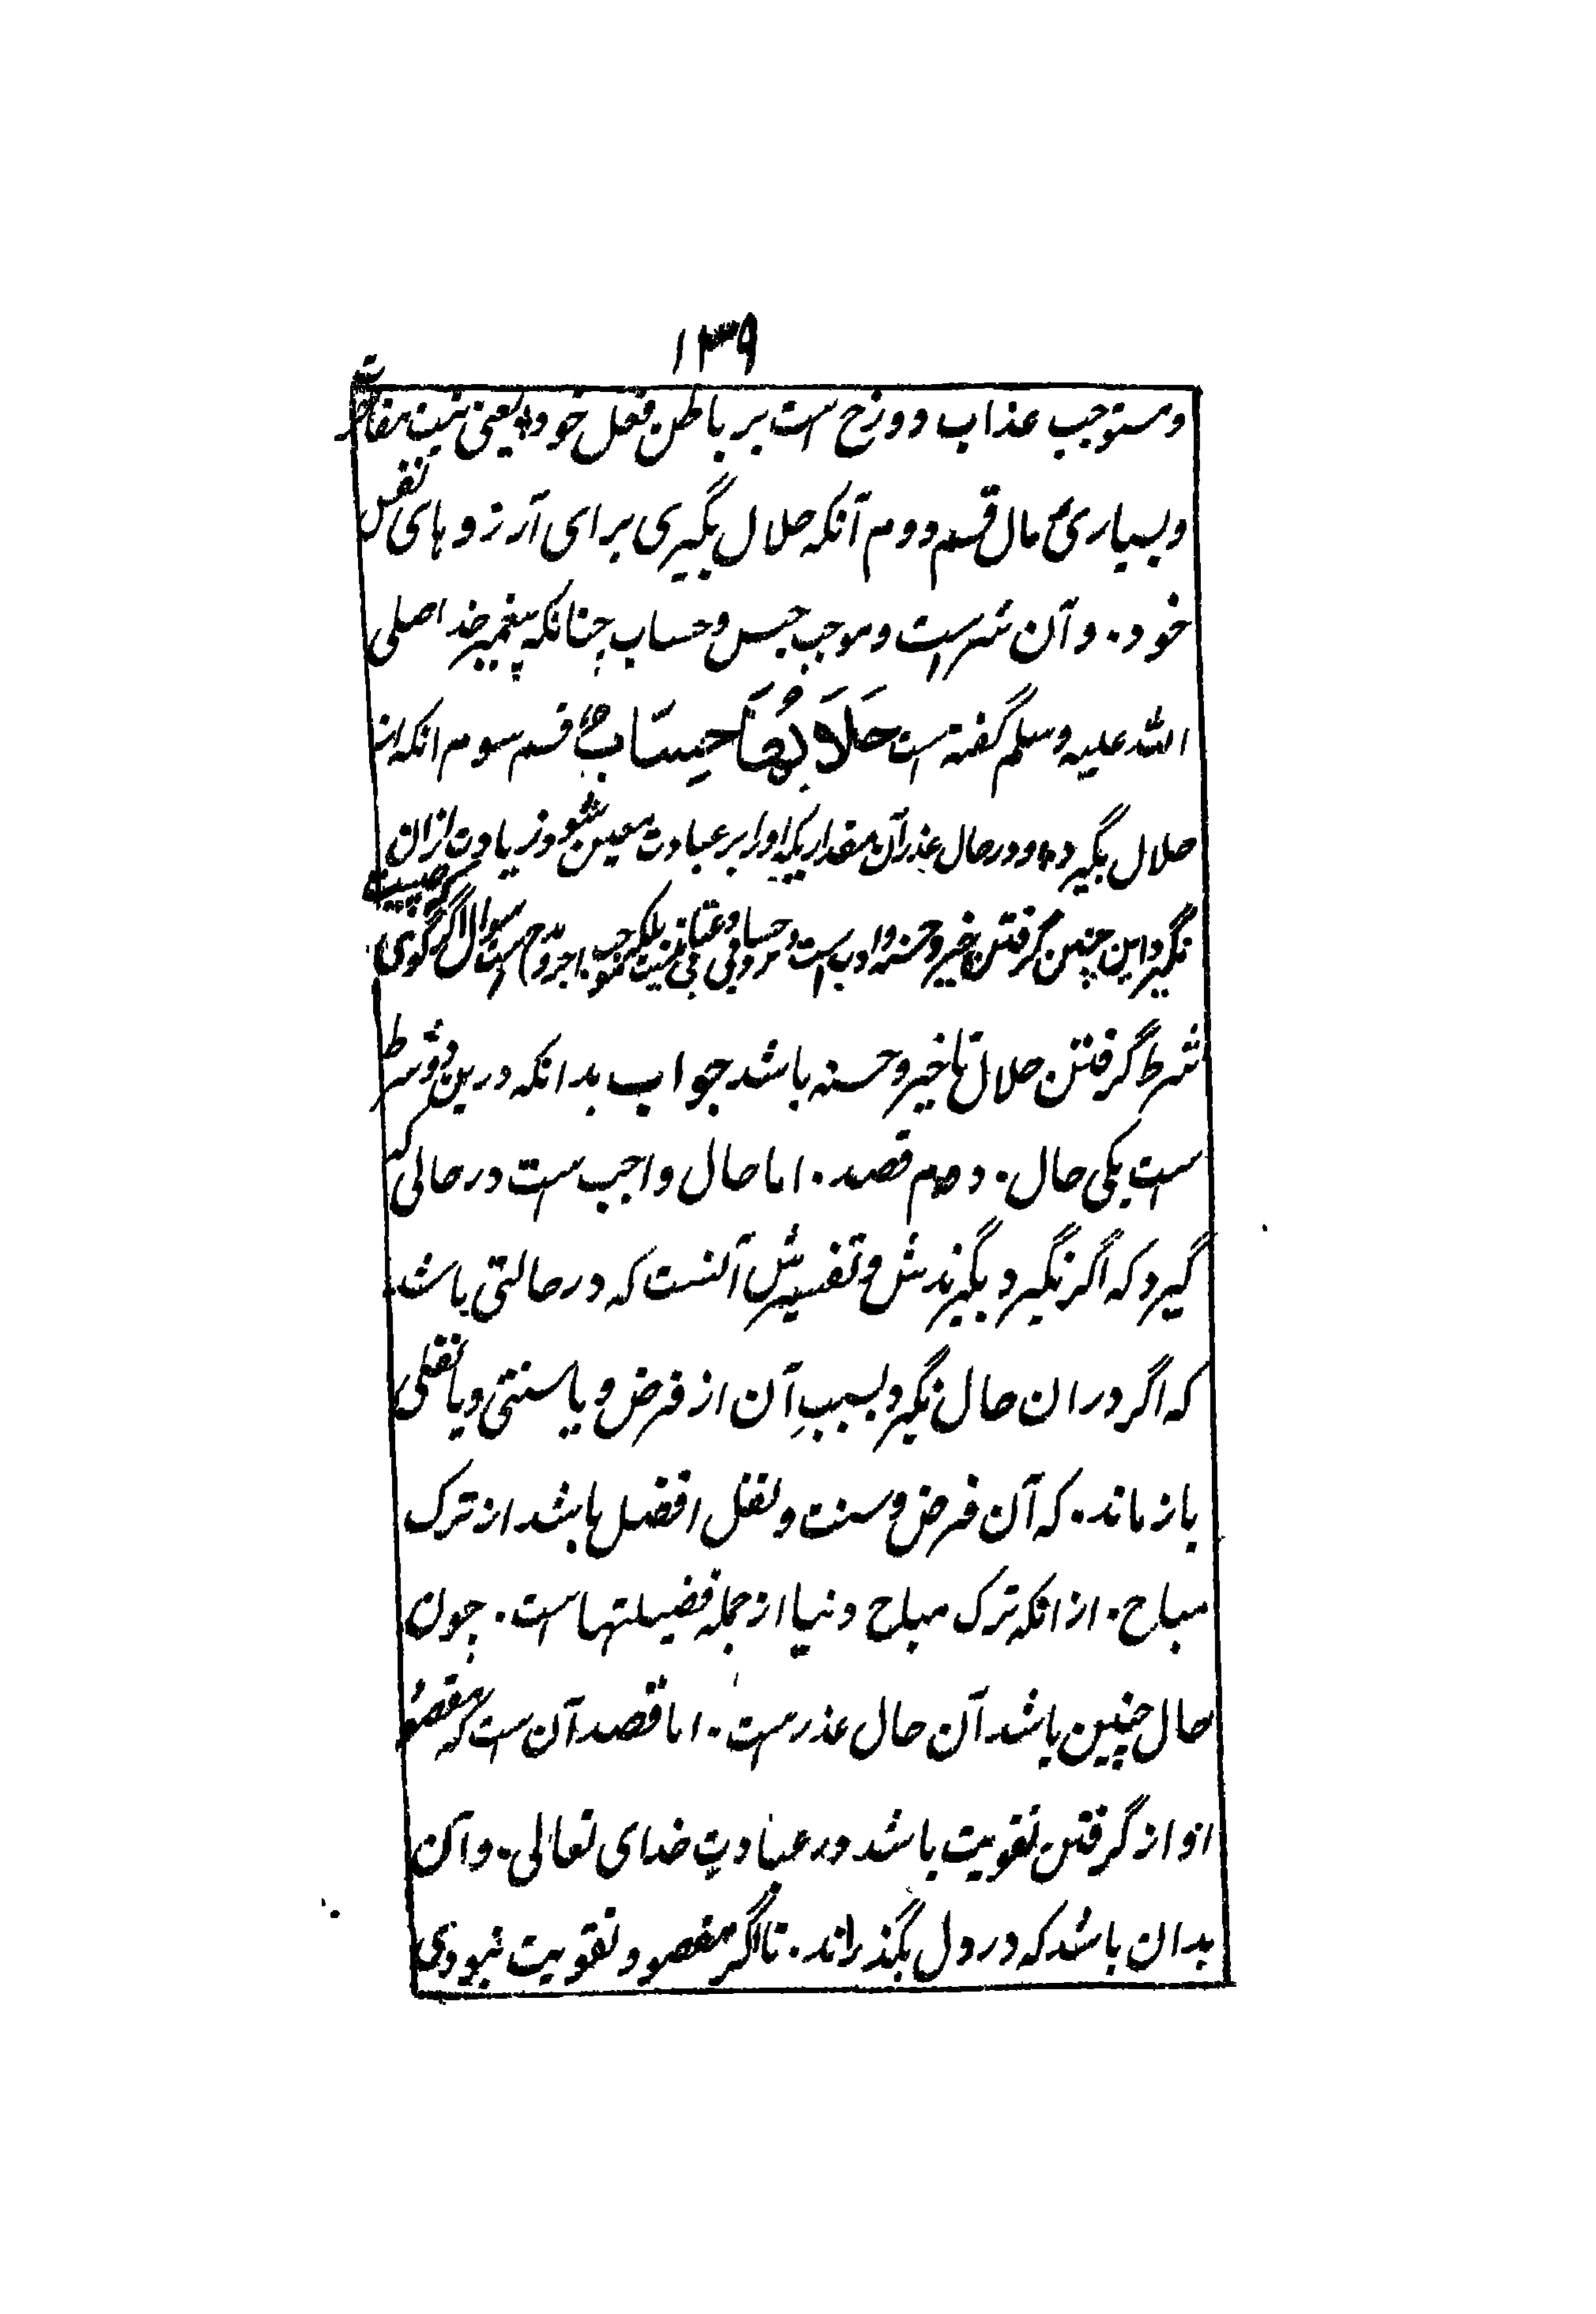 ۱۳۹
و مستوجب عذاب دوزخ است بر باطن فعل خود یعنی نیت مفاخرت
و بسیاری مال قسم دوم آنکه حلال بگیری برای آرزوهای نفس
خود. و آن شر است و موجب حبس و حساب چنانکه پیغمبر خدا صلی
الله علیه وسلم گفته است حَلَالُهَا حِسَابٌ قسم سوم انکه از
حلال بگیرد و در حال عذر آن مقدار یکه او را بر عبادت معین شود زیادت ازان
نگیرد این چنین گرفتن خیر و حسنه و ادب است و بروی حساب و عتاب نیست بلکه موجب اجر و مدح است سوال اگر گوی که چیست
شرط گرفتن حلال تا خیر و حسنه باشد جواب بدانکه درین دو شرط
است یکی حال. دوم قصد. اما حال واجب ست در حالی که
گیرد که اگر نگیرد بگیرندش و تفسیرش آنست که در حالتی باشد
که اگر دران حال نگیرد بسببِ آن از فرض و یا سنتی و یا نفلی
باز ماند. که آن فرض و سنت و نفل افضل باشد از ترک
مباح. از انکه ترک مباح دنیا از جمله فضیلتها است. چون
حال چنین باشد آن حال عذر ست. اما قصد آن ست که مقصود
او از گرفتن تقویت باشد در عبادتِ خدای تعالی. و آن
بدان باشد که در دل بگذراند. تا اگر مقصود تقویت نبودی